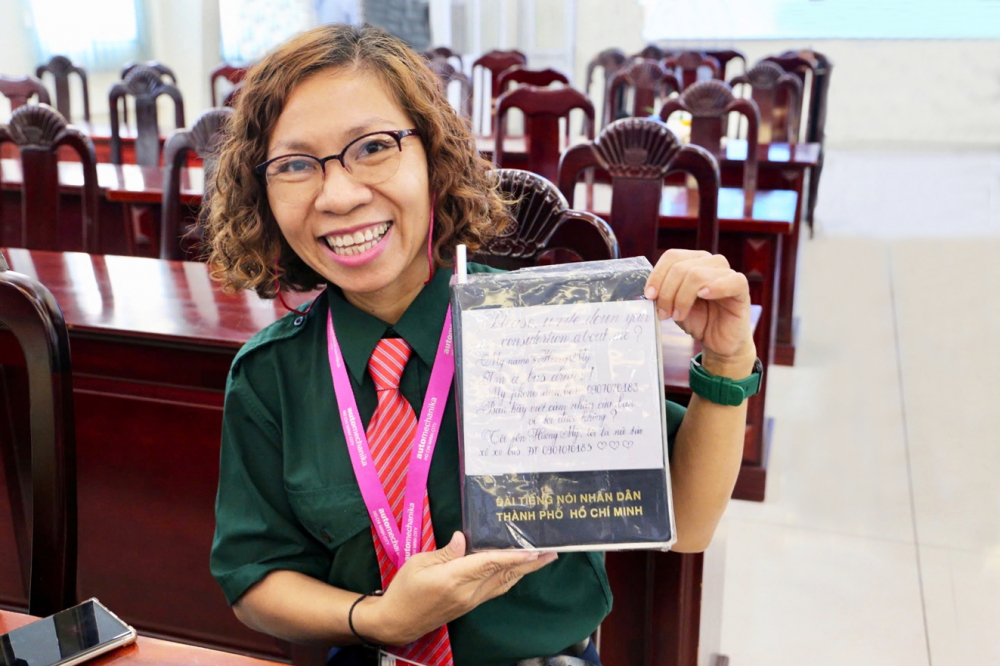 Please, write down your
consideration about me?
My name's Hoàng Mỹ
I'm a bus driver!
My phone number: 0907010183
Bạn hãy viết cảm nhận của bạn
về tôi được không?
Tôi tên Hoàng Mỹ, tôi là nữ tài
xế xe bus. ĐT 0907010183 ♡♡♡
ĐÀI TIẾNG NÓI NHÂN DÂN
THÀNH PHỐ HỒ CHÍ MINH
automechanika
automechanika
HO CHI MINH CITY